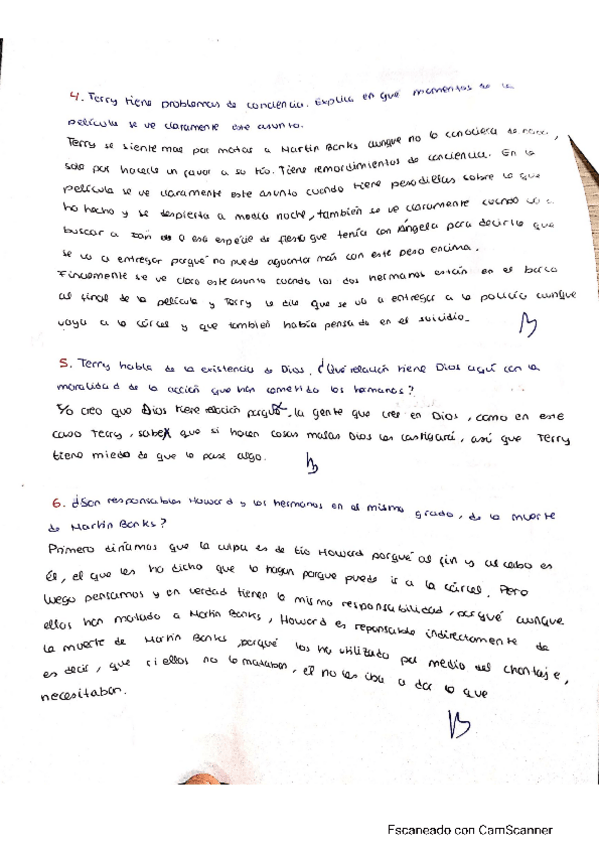 4. Terry tiene problemas de conciencia. Explica en qué momentos de la
película se ve claramente este asunto.
Terry se siente mas por matar a Martin Banks aunque no lo conociera de nada,
solo por hacerle un favor a su tío. Tiene remordimientos de conciencia. En la
película se ve claramente este asunto cuando tiene pesadillas sobre lo que
ha hecho y se despierta a media noche, también se ve claramente cuando va a
buscar a Ian o esa especie de fiesta que tenía con Ángela para decirle que
se va a entregar porqué no puede aguantar más con este peso encima.
Finalmente se ve claro este asunto cuando los dos hermanos están en el barco
al final de la película y Terry le dice que se va a entregar a la policía aunque
vaya a la cárcel y que también había pensado en el suicidio.
B
5. Terry habla de la existencia de Dios. ¿Qué relación tiene Dios aquí con la
moralidad de la acción que han cometido los hermanos?
Yo creo que Dios tiene relación porque, la gente que cree en Dios, como en este
caso Terry, sabe que si hacen cosas malas Dios les castigará, así que Terry
tiene miedo de que le pase algo.
B
6. ¿Son responsables Howard y los hermanos en el mismo grado, de la muerte
de Martin Banks?
Primero diríamos que la culpa es de tío Howard porqué al fin y al cabo es
él, el que les ha dicho que lo hagan porque puede ir a la cárcel. Pero
luego pensamos y en verdad tienen la misma responsabilidad, porqué aunque
ellos han matado a Martin Banks, Howard es reponsable indirectamente de
la muerte de Martin Banks, porqué los ha utilizado por medio del chantaje,
es decir, que si ellos no lo mataban, el no les iba a dar lo que
necesitaban.
B
Escaneado con CamScanner